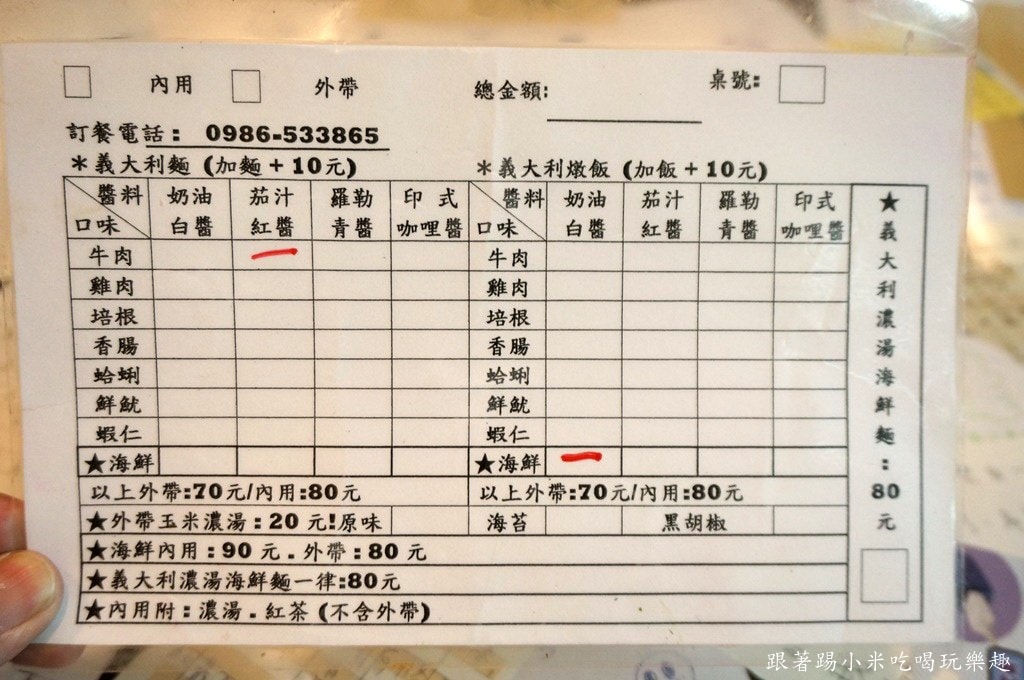 內用 外帶 總金額: 桌號:
訂餐電話: 0986-533865
＊義大利麵 (加麵+10元) ＊義大利燉飯 (加飯+10元)
醬料 口味 奶油白醬 茄汁紅醬 羅勒青醬 印式咖哩醬 醬料 口味 奶油白醬 茄汁紅醬 羅勒青醬 印式咖哩醬
牛肉 牛肉
雞肉 雞肉
培根 培根
香腸 香腸
蛤蜊 蛤蜊
鮮魷 鮮魷
蝦仁 蝦仁
★海鮮 ★海鮮
以上外帶:70元/內用:80元 以上外帶:70元/內用:80元
★外帶玉米濃湯:20元!原味 海苔 黑胡椒
★海鮮內用:90元.外帶:80元
★義大利濃湯海鮮麵一律:80元
★內用附:濃湯.紅茶(不含外帶)
★義大利濃湯海鮮麵:80元
跟著踢小米吃喝玩樂趣